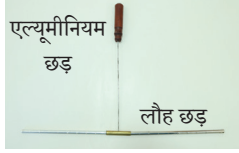 एल्यूमीनियम
छड़
लौह छड़